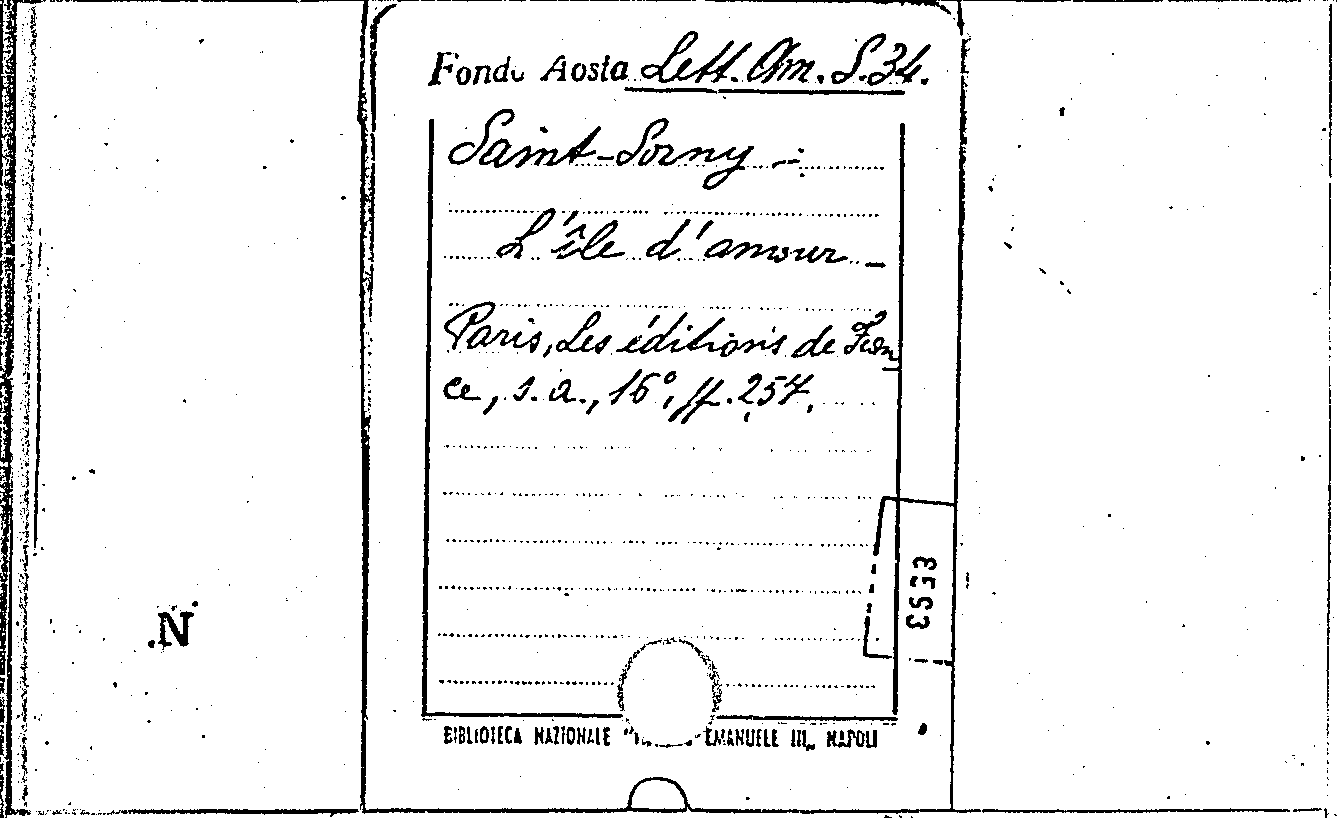 Fondo Aosta Lett. Am. S. 34.
Saint-Sorny -
L'île d'amour -
Paris, Les éditions de Fran
ce, s.a., 16°, pp. 257.
N.
BIBLIOTECA NAZIONALE " EMANUELE III„ NAPOLI